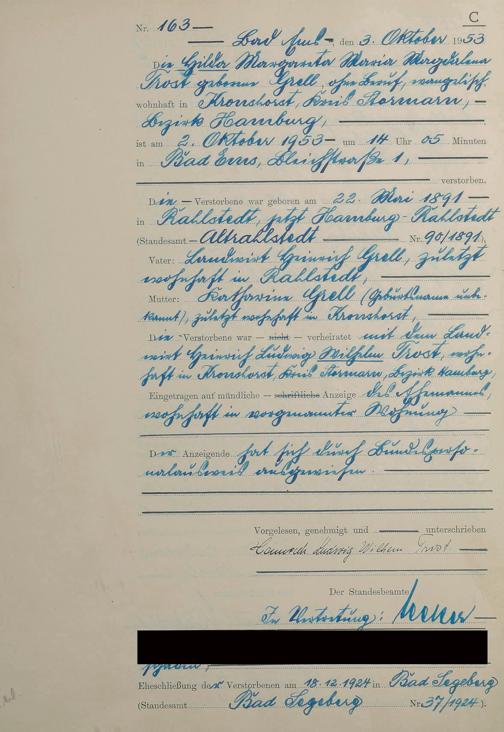 C
Nr. 163
Bad Ems, den 3. Oktober 1953
Die Hilda Margareta Maria Magdalena
Trost geborene Grell, ohne Beruf, evangelisch,
wohnhaft in Kronshorst, Kreis Stormarn,
Bezirk Hamburg,
ist am 2. Oktober 1953 um 14 Uhr 05 Minuten
in Bad Ems, Bleichstraße 1,
verstorben.
Die Verstorbene war geboren am 22. Mai 1891
in Rahlstedt, jetzt Hamburg-Rahlstedt
(Standesamt Altrahlstedt Nr. 90/1891).
Vater: Landwirt Heinrich Grell, zuletzt
wohnhaft in Rahlstedt,
Mutter: Katharine Grell (Geburtsname unbe-
kannt), zuletzt wohnhaft in Kronshorst,
Die Verstorbene war — nicht — verheiratet mit dem Land-
wirt Heinrich Ludwig Wilhelm Trost, wohn-
haft in Kronshorst, Kreis Stormarn, Bezirk Hamburg,
Eingetragen auf mündliche — schriftliche Anzeige des Ehemannes,
wohnhaft in vorgenannter Wohnung
Der Anzeigende hat sich durch Bundesperso-
nalausweis ausgewiesen.
Vorgelesen, genehmigt und unterschrieben
Heinrich Ludwig Wilhelm Trost
Der Standesbeamte
In Vertretung:
Eheschließung der Verstorbenen am 18.12.1924 in Bad Segeberg
(Standesamt Bad Segeberg Nr. 37/1924).